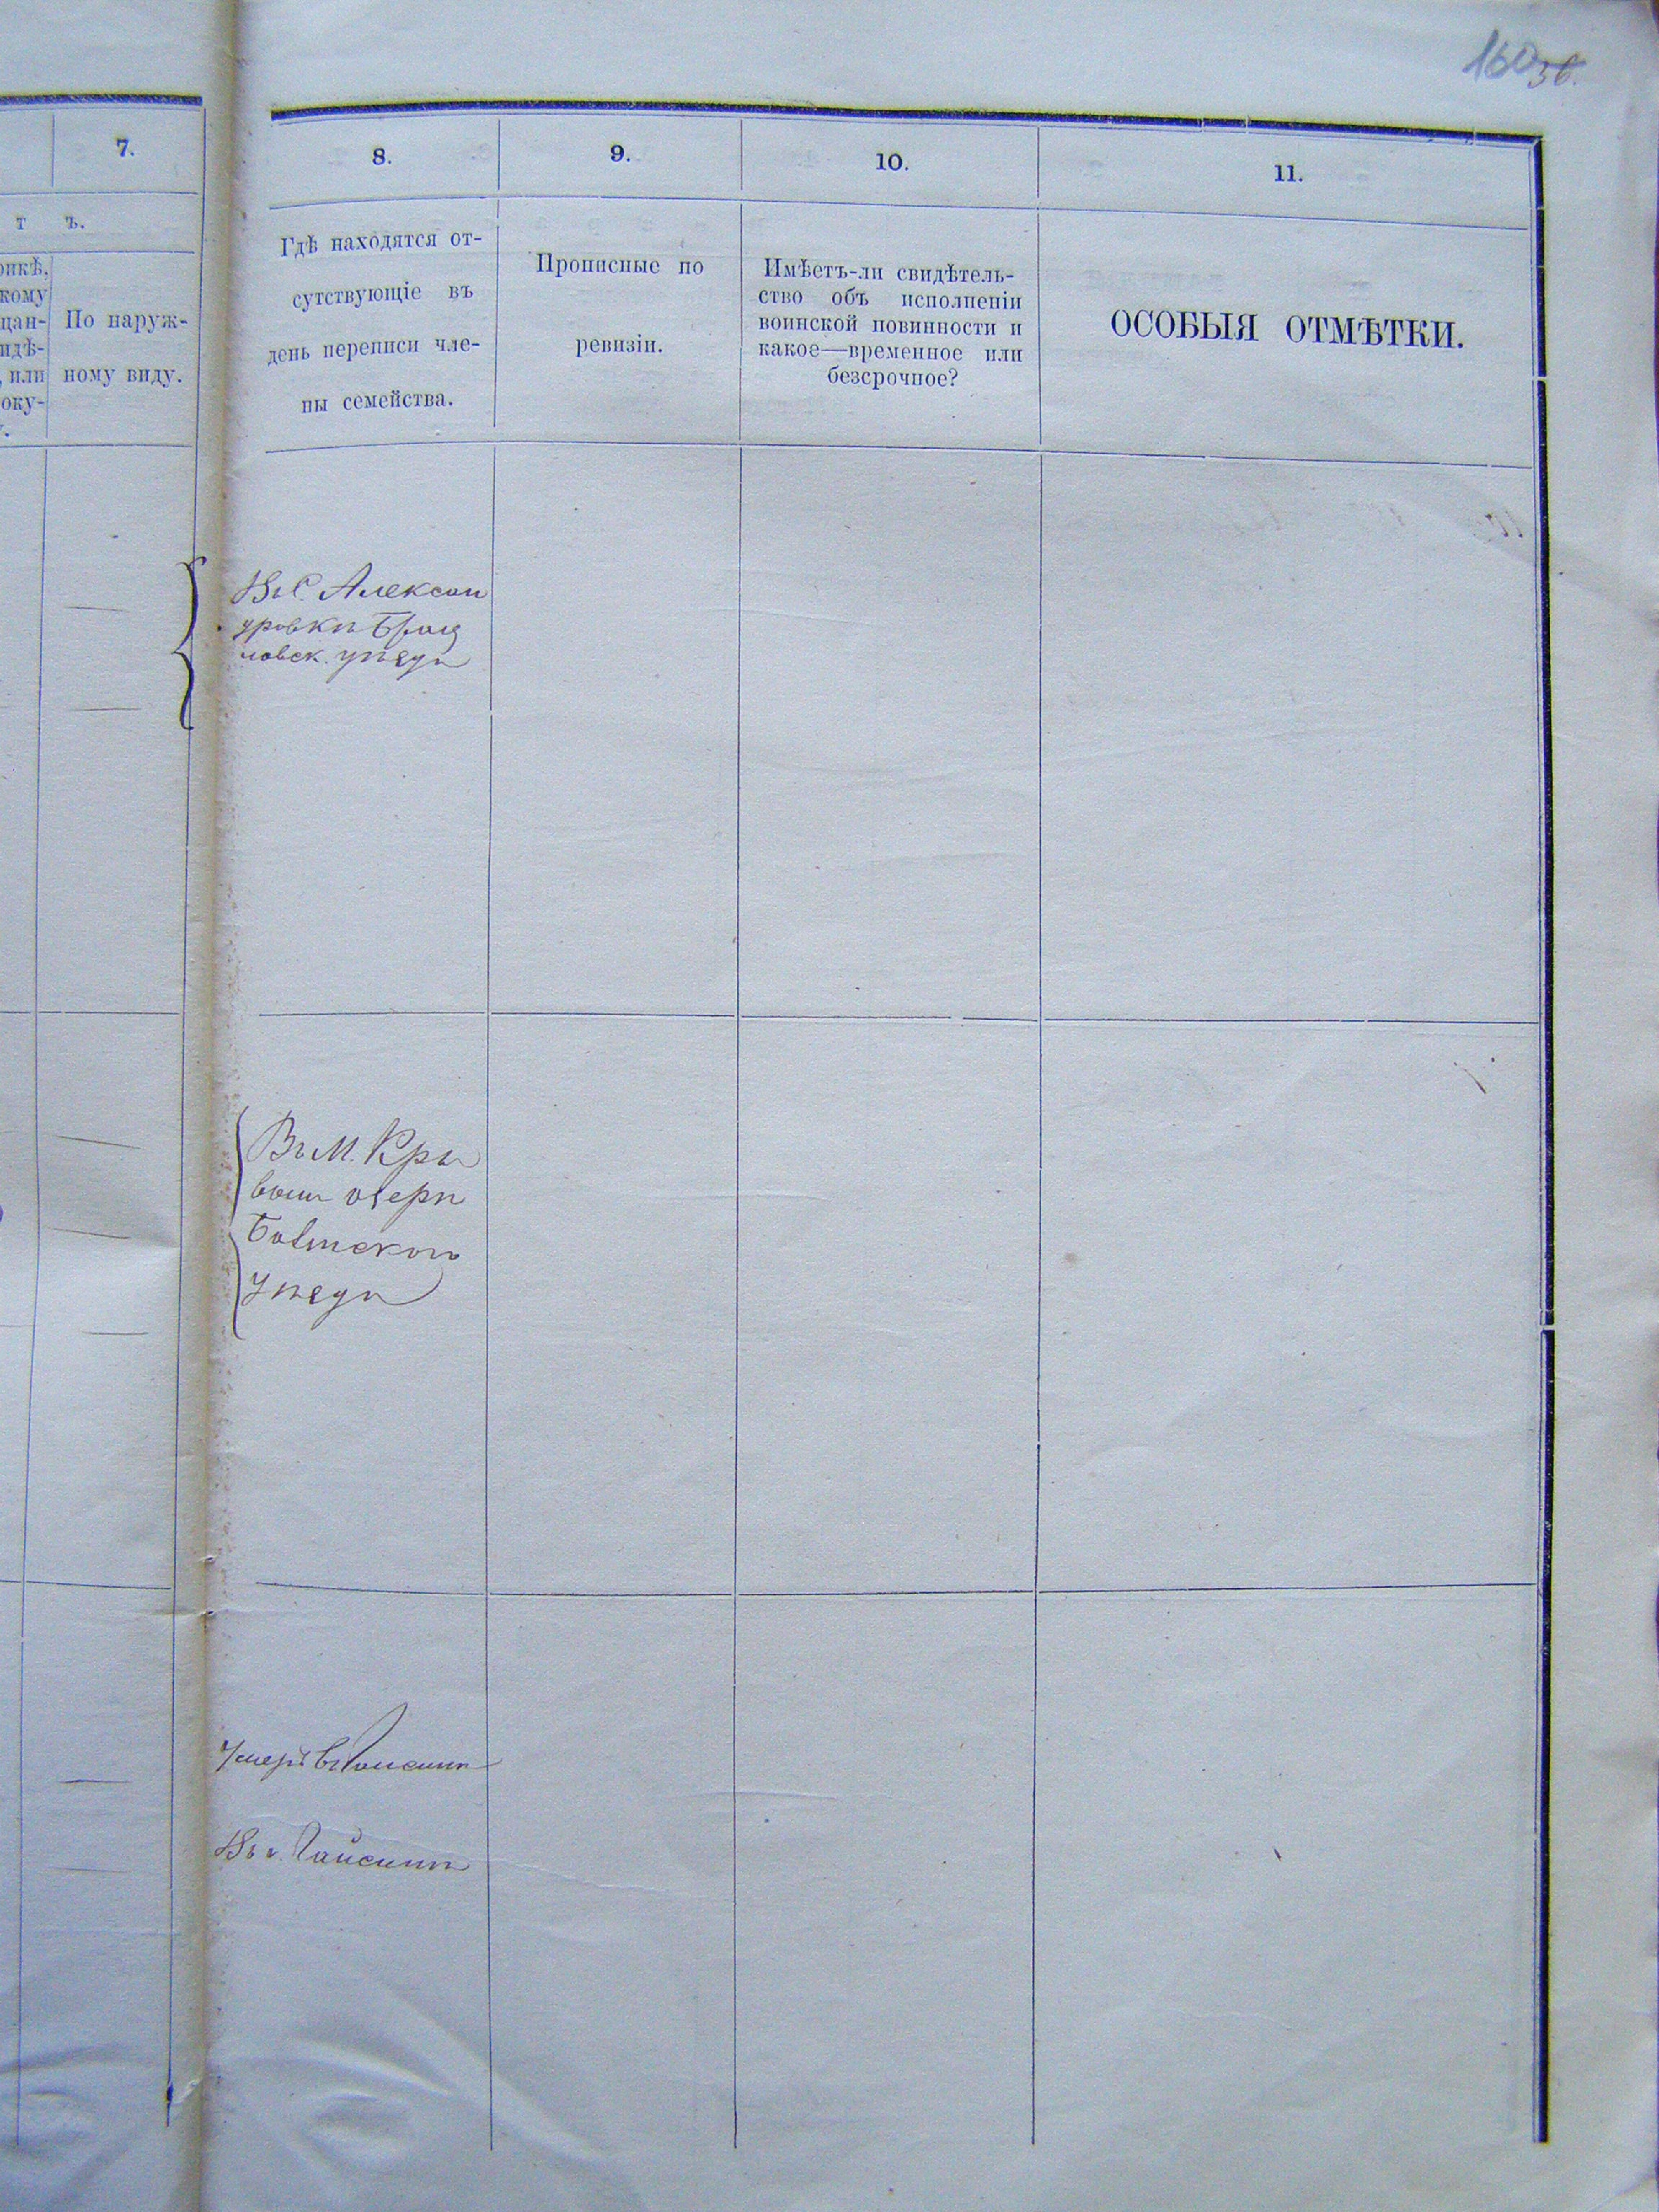 160 36.
7.
т ъ.
оикѣ,
кому
цан-
идѣ-
, или
оку-
По наруж-
ному виду.
8.
9.
10.
11.
Гдѣ находятся от-
сутствующіе въ
день переписи чле-
ны семейства.
Прописные по
ревизіи.
Имѣетъ-ли свидѣтель-
ство объ исполненіи
воинской повинности и
какое—временное или
безсрочное?
ОСОБЫЯ ОТМѢТКИ.
Въ С. Алексан
дровкѣ Брац
лавск. уѣзда
Въ М. Кры
вомъ озерѣ
Балтского
Уѣзда
Умеръ въ Гайсинѣ
Въ г. Гайсинѣ